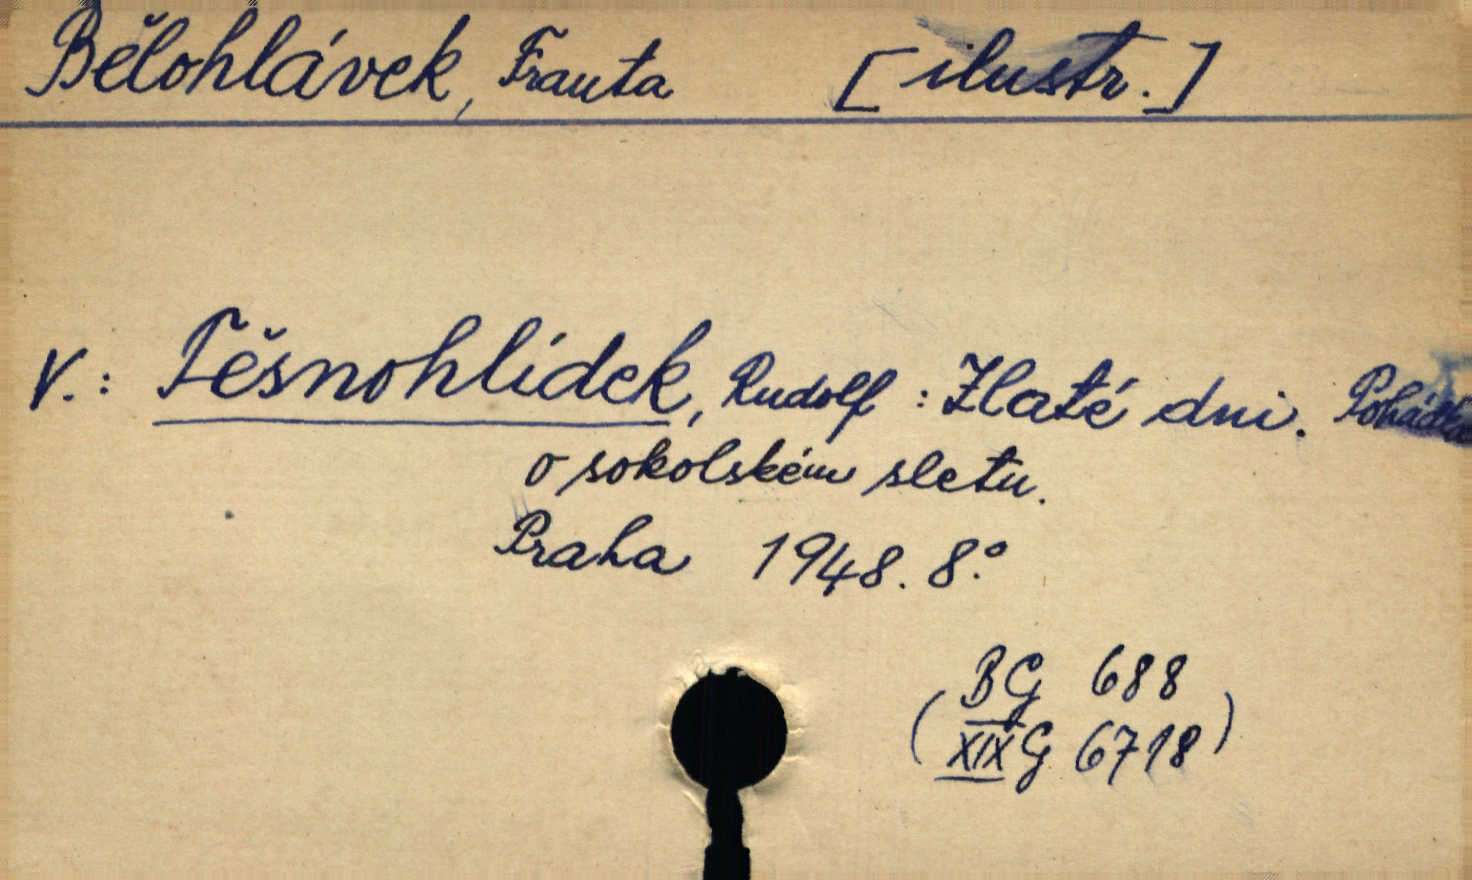 Bělohlávek, Franta [ilustr.]
V.: Těsnohlídek, Rudolf : Zlaté dni. Pohádka
o sokolském sletu.
Praha 1948. 8.°
BG 688
(XIX G 6718)